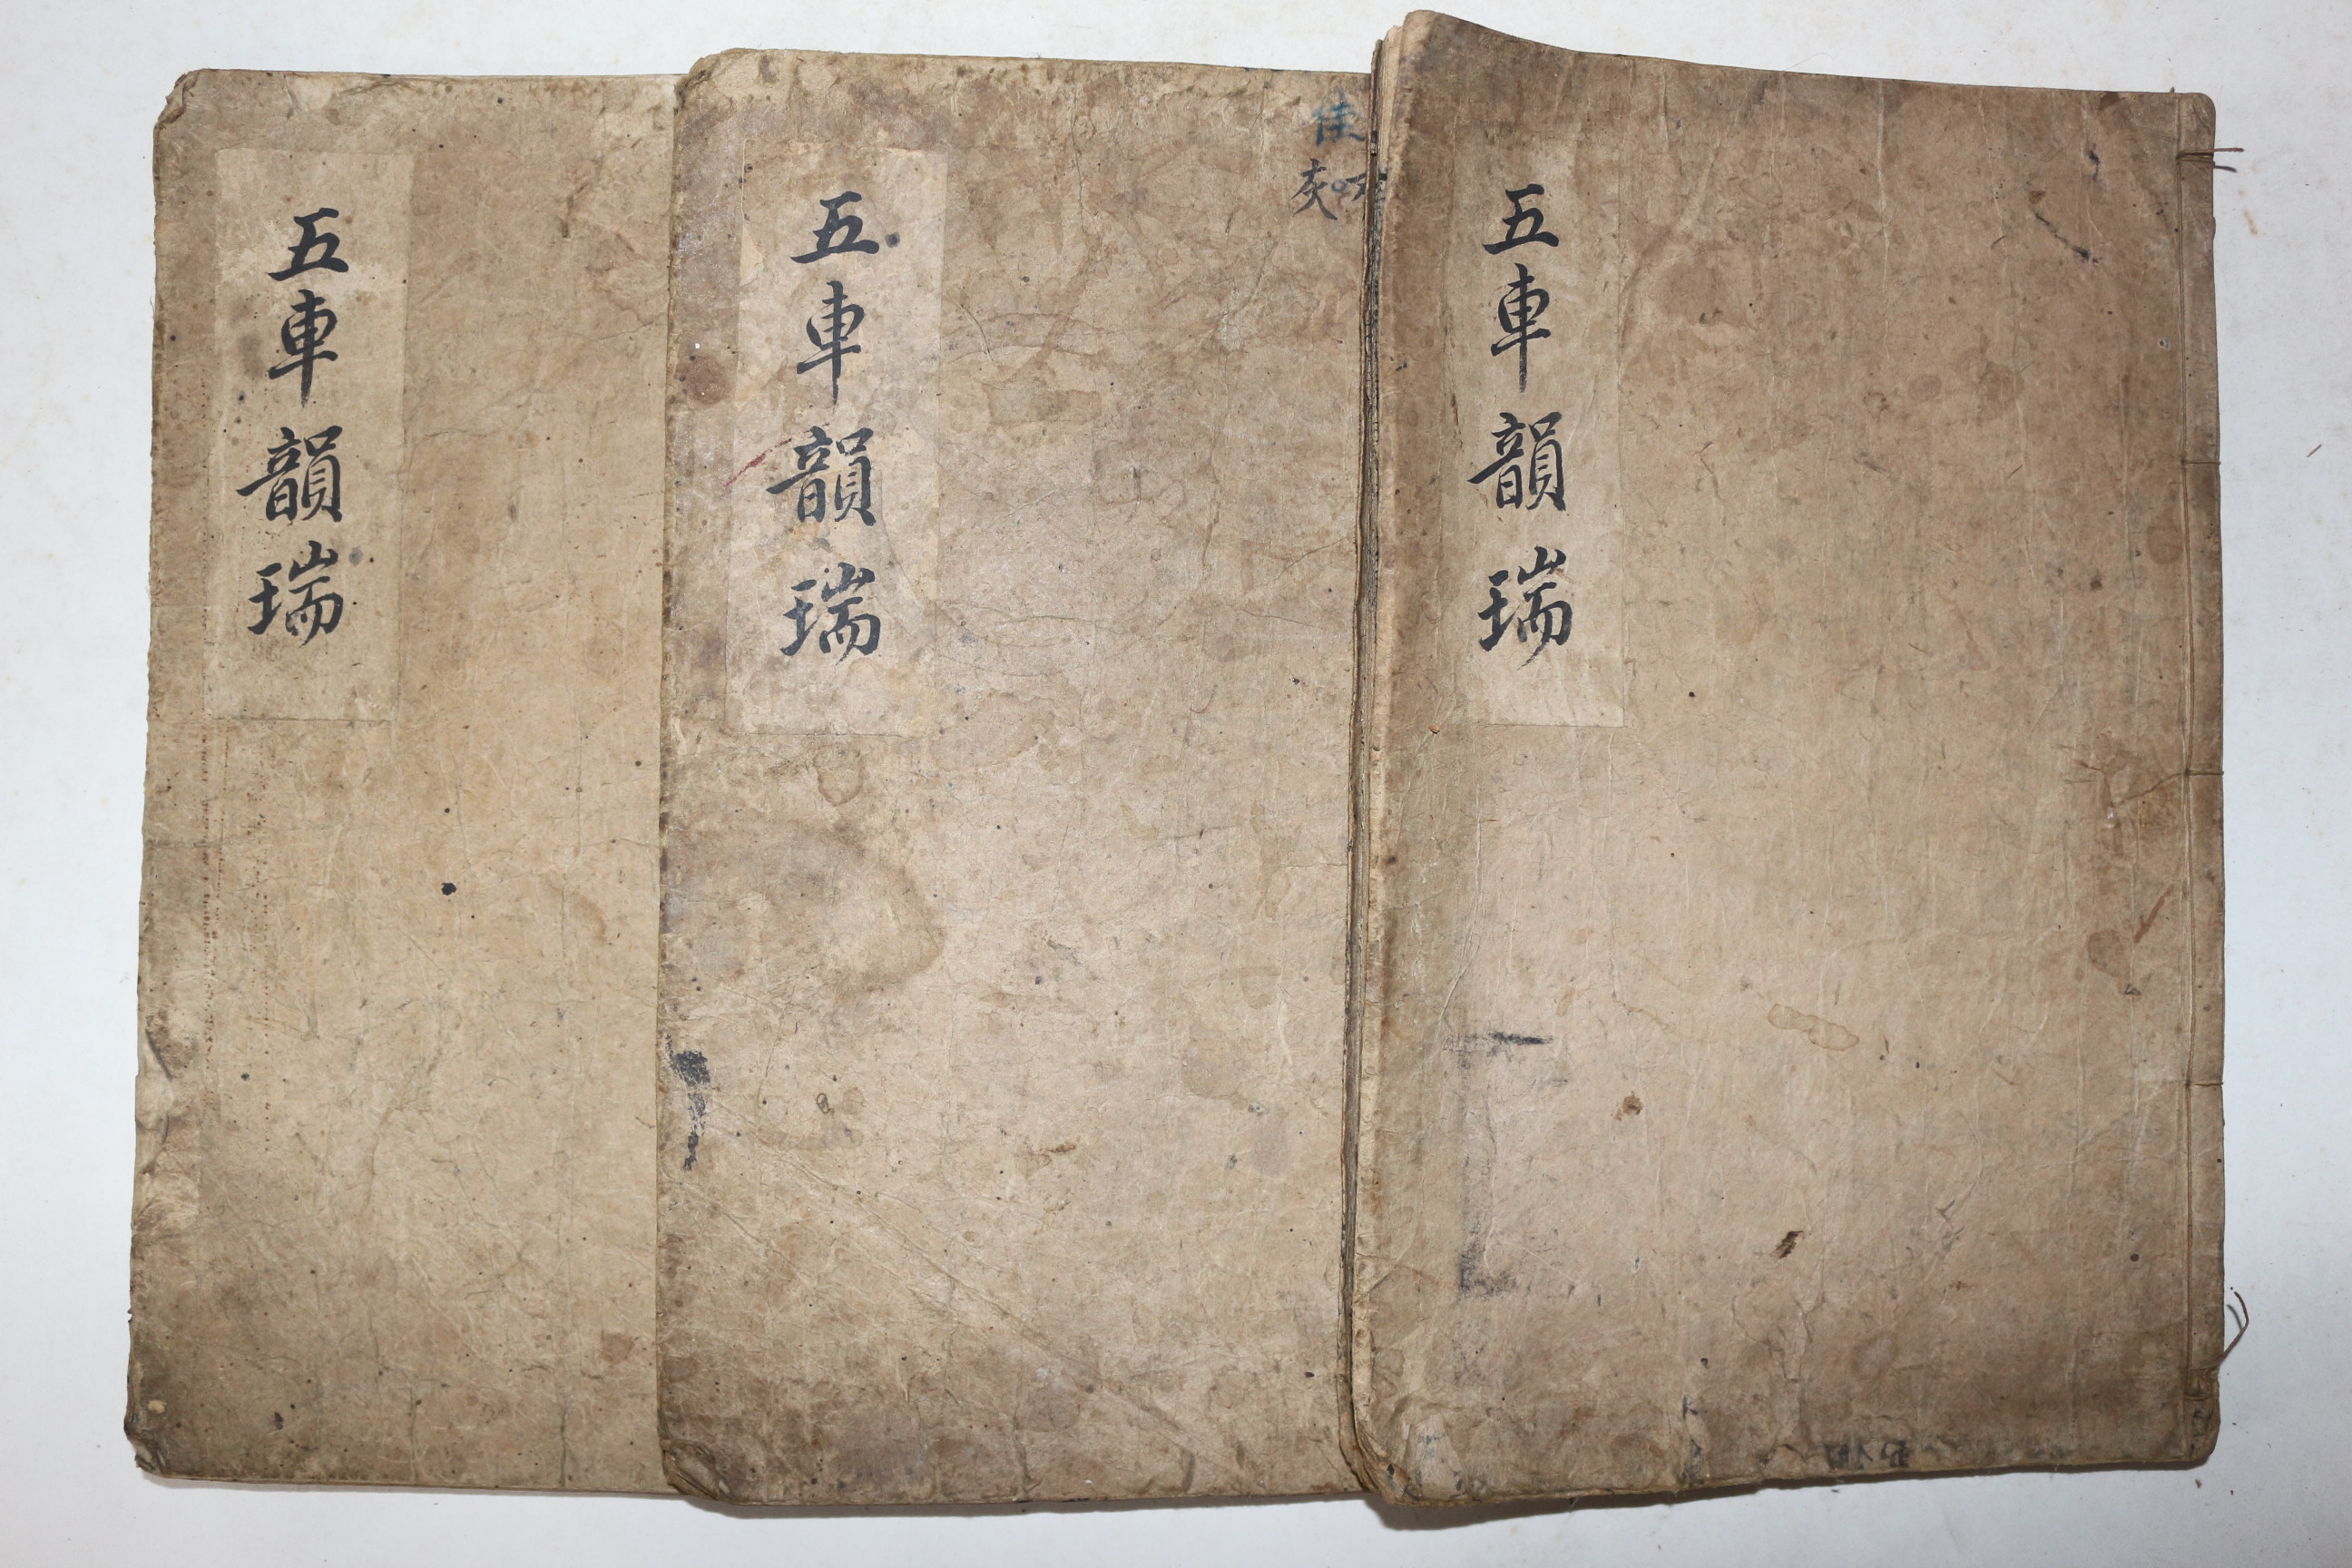 五車韻瑞
五車韻瑞
佳
灰
五車韻瑞